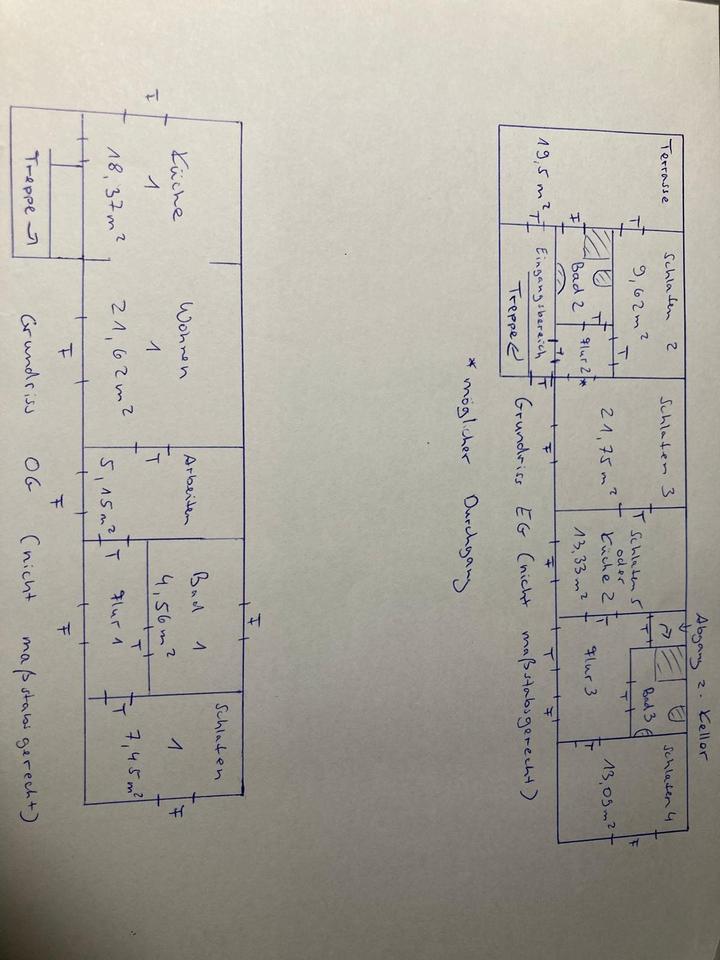 Abgang z. Keller
Terrasse
19,5 m²
Schlafen 2
9,62 m²
Bad 2
Flur 2 *
Eingangsbereich
Treppe
Schlafen 3
21,75 m²
Schlafen 5
oder
Küche 2
13,33 m²
Flur 3
Bad 3
Schlafen 4
13,09 m²
T
T
T
T
T
T
T
T
T
T
T
T
F
F
F
F
F
Grundriss EG (nicht maßstabsgerecht)
* möglicher Durchgang
Küche
1
18,37 m²
Treppe
Wohnen
1
21,62 m²
Arbeiten
5,15 m²
Bad 1
4,56 m²
Flur 1
Schlafen
1
7,45 m²
T
T
T
T
F
F
F
F
F
F
Grundriss OG (nicht maßstabsgerecht)